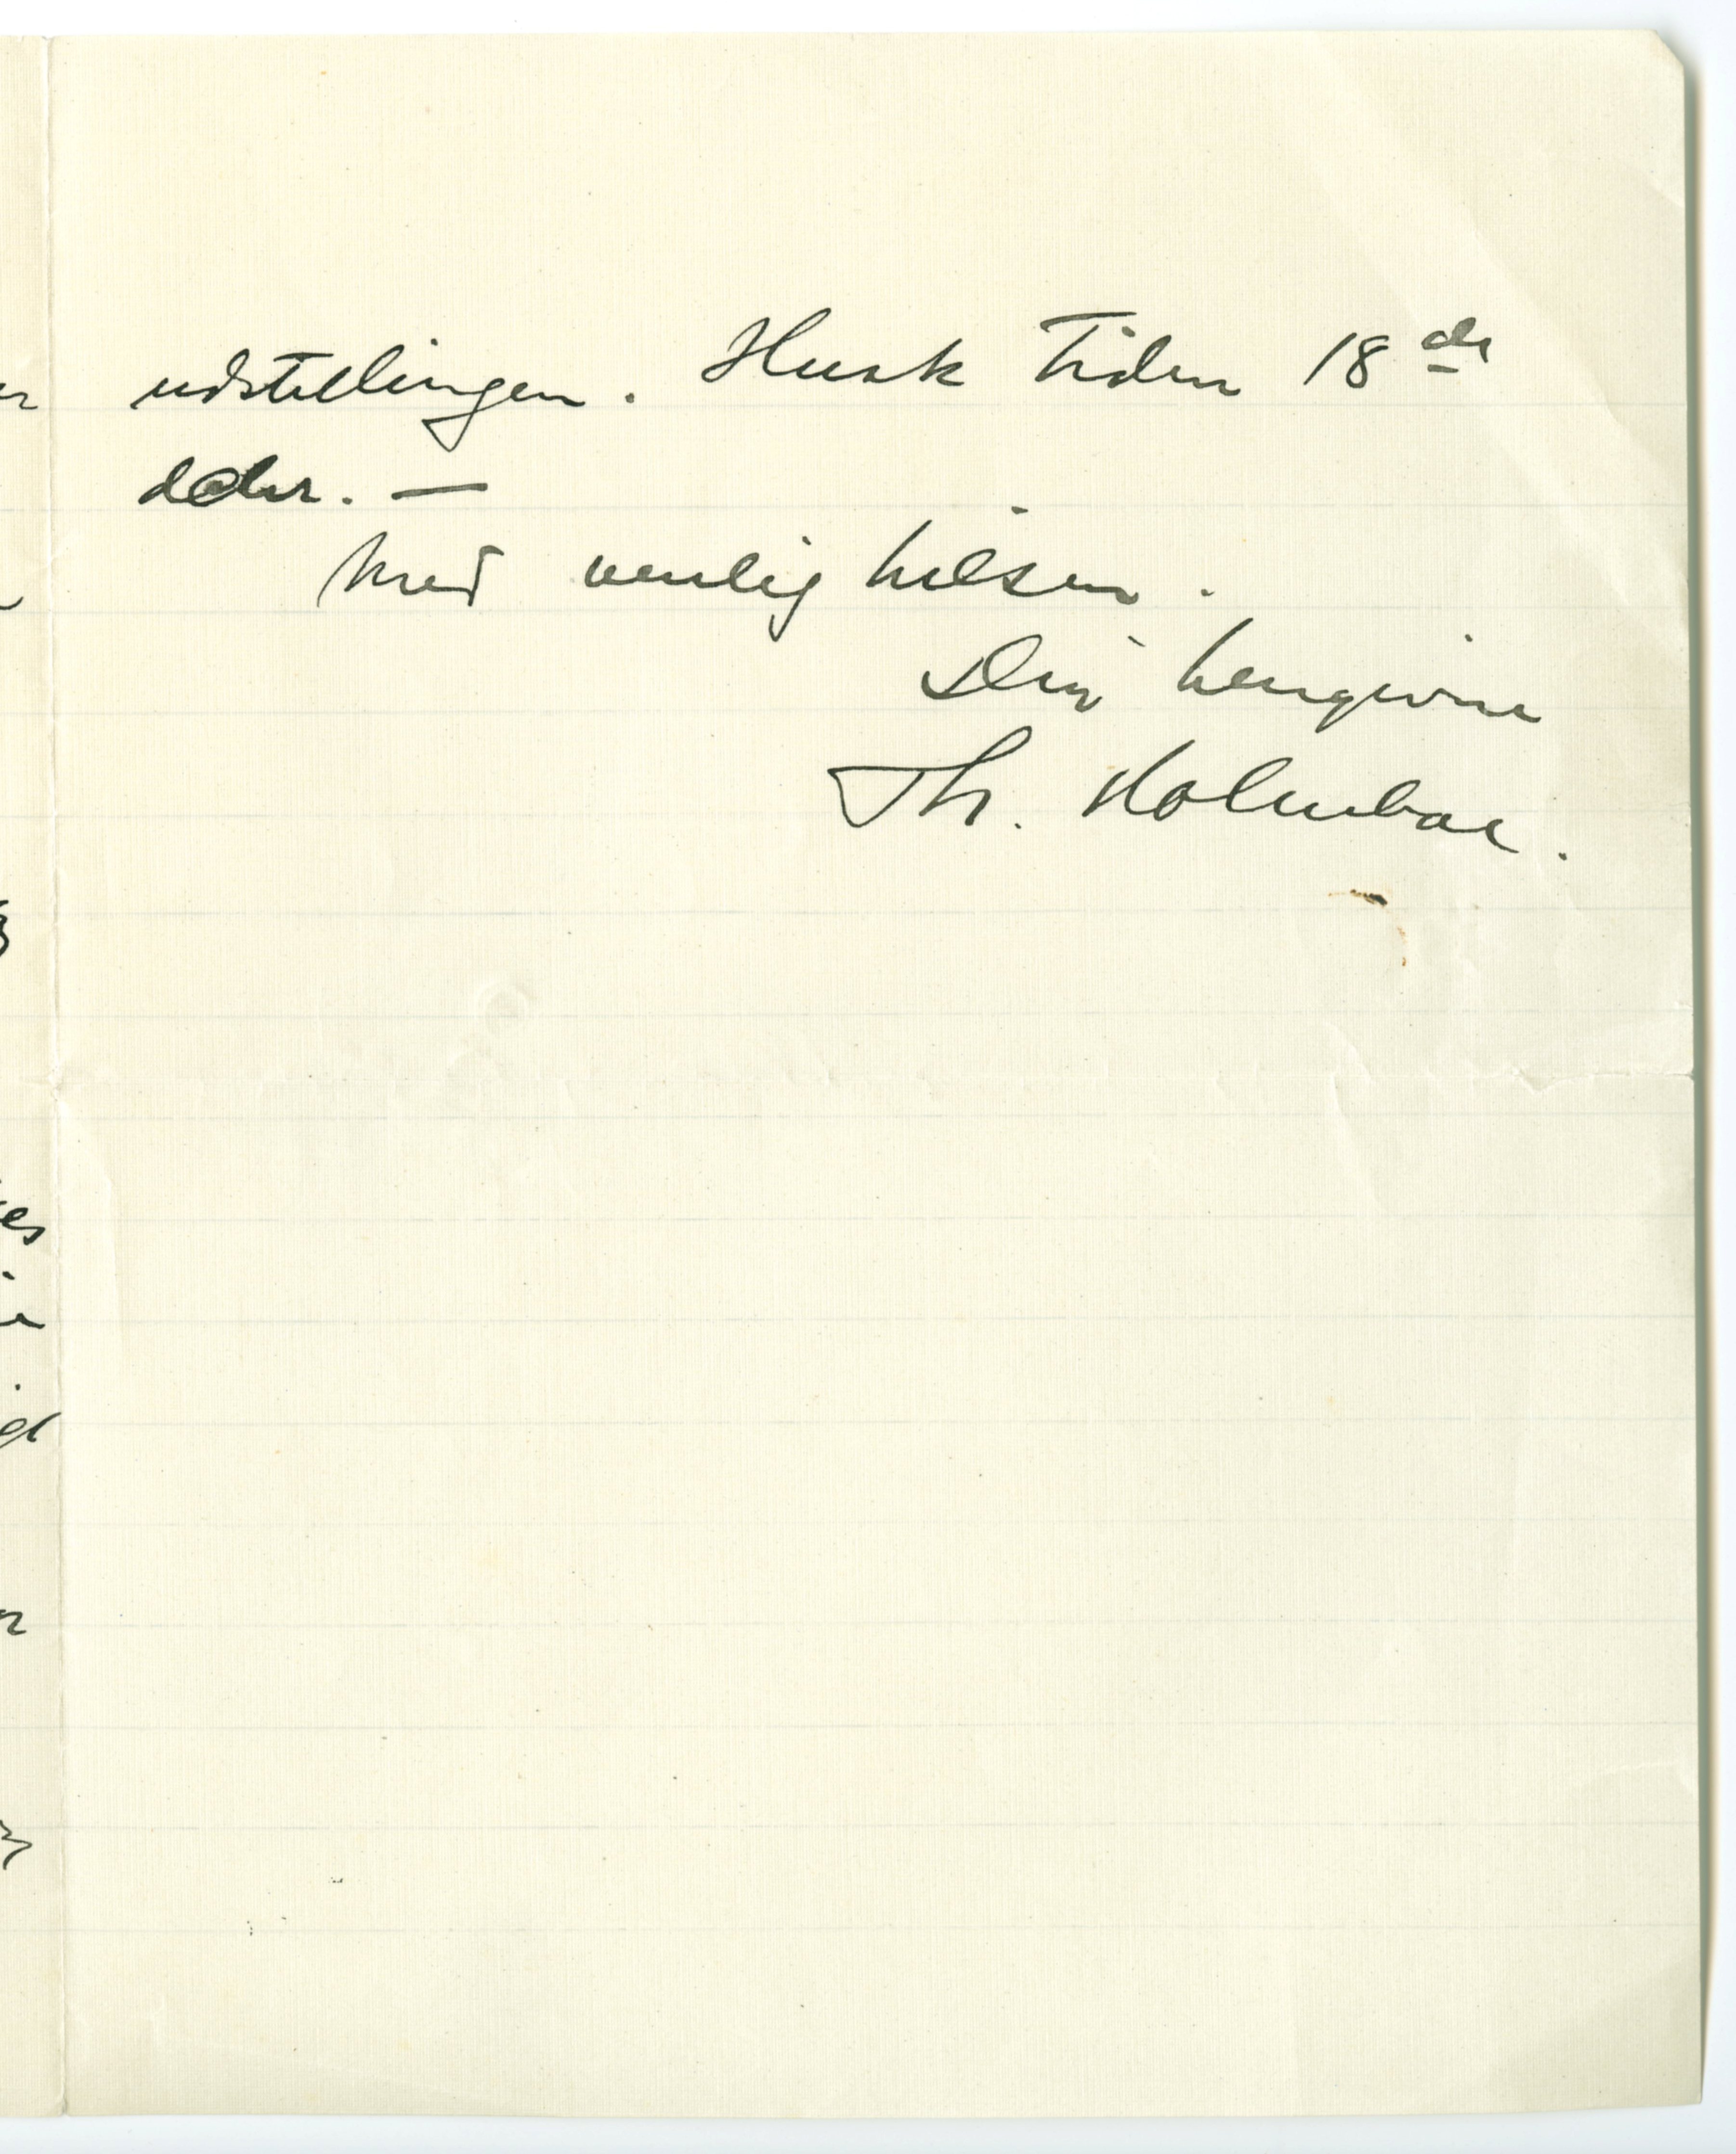 udstillingen. Husk Tiden 18de
dcbr. —
Med venlig hilsen.
Din hengivne
Th. Holmboe.